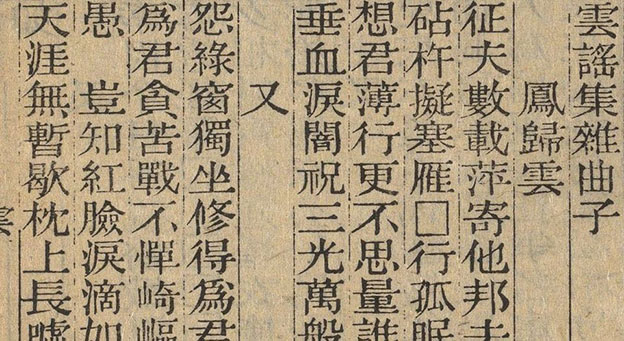 雲謠集雜曲子
鳳歸雲
征夫數載萍寄他邦去
砧杵擬塞雁□行孤眠
想君薄行更不思量誰
垂血淚闇祝三光萬般
又
怨綠窗獨坐修得爲君
爲君貪苦戰不憚崎嶇
愚　豈知紅臉淚滴如
天涯無暫歇枕上長噓